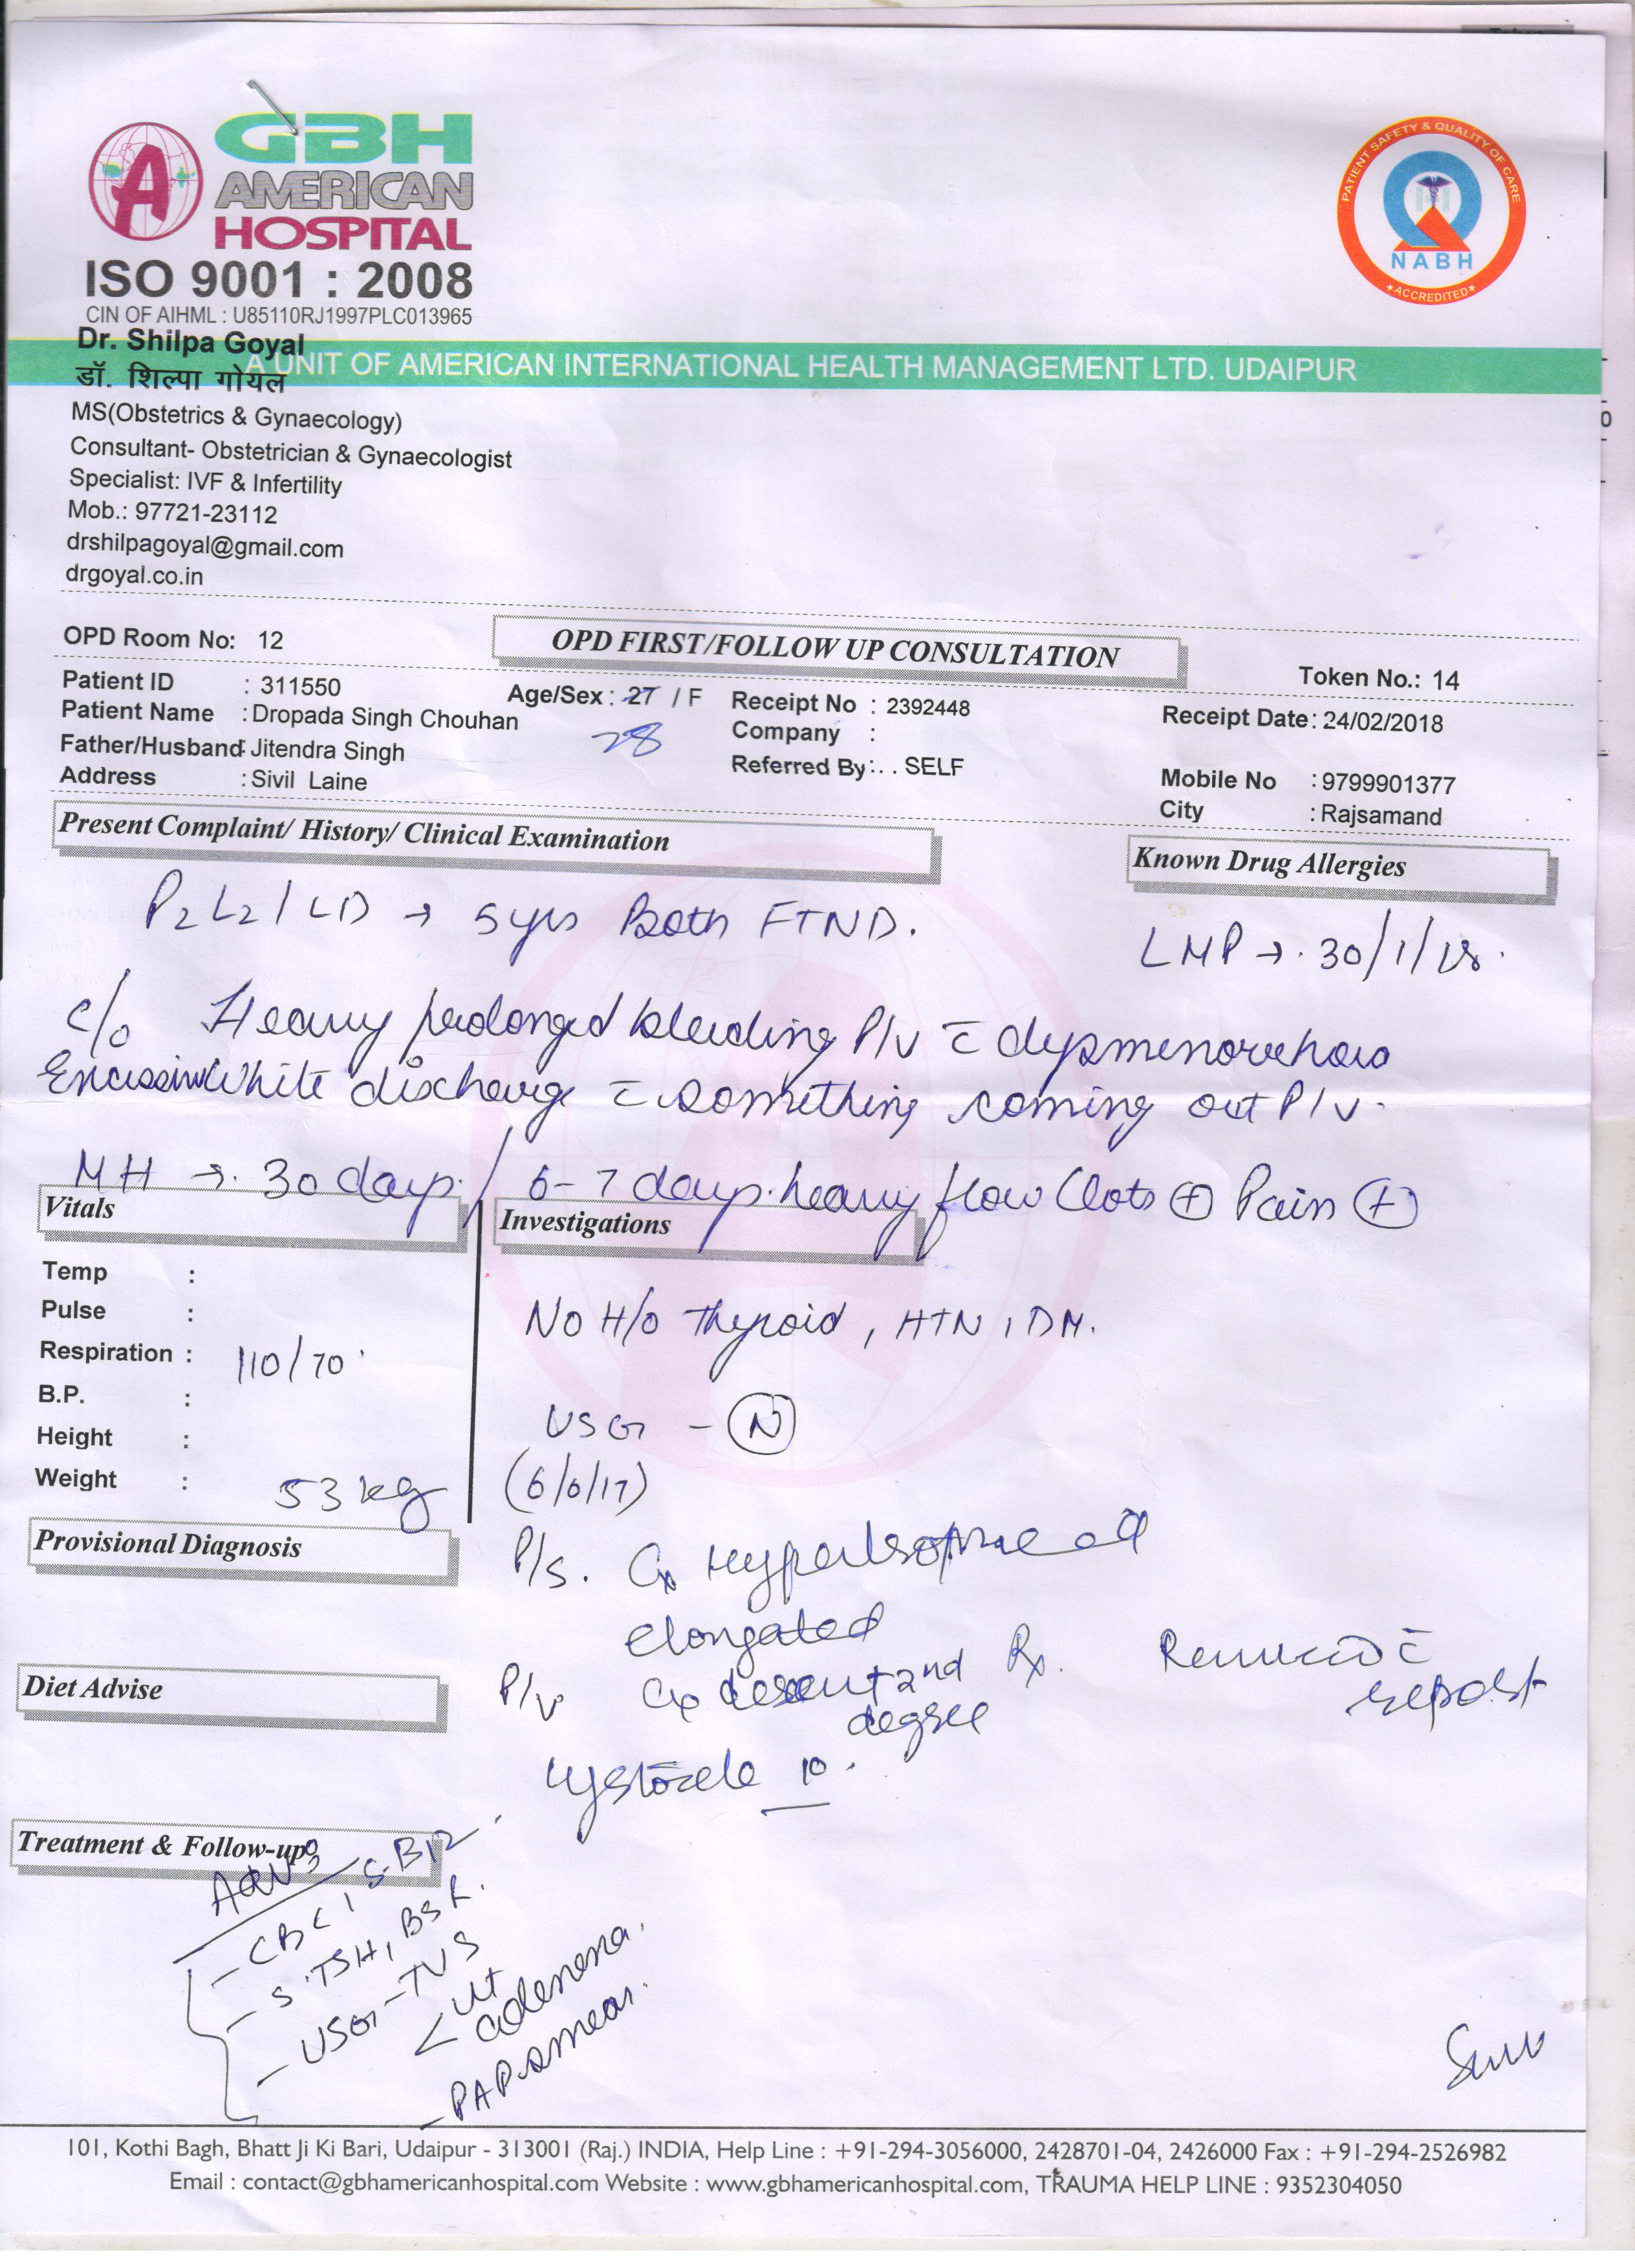 GBH
AMERICAN
HOSPITAL
ISO 9001 : 2008
CIN OF AIHML : U85110RJ1997PLC013965
PATIENT SAFETY & QUALITY OF CARE
NABH
ACCREDITED
A UNIT OF AMERICAN INTERNATIONAL HEALTH MANAGEMENT LTD. UDAIPUR
Dr. Shilpa Goyal
डॉ. शिल्पा गोयल
MS(Obstetrics & Gynaecology)
Consultant- Obstetrician & Gynaecologist
Specialist: IVF & Infertility
Mob.: 97721-23112
drshilpagoyal@gmail.com
drgoyal.co.in
OPD Room No: 12
OPD FIRST/FOLLOW UP CONSULTATION
Token No.: 14
Patient ID : 311550
Age/Sex : 27 / F
28
Receipt No : 2392448
Receipt Date: 24/02/2018
Patient Name : Dropada Singh Chouhan
Company :
Father/Husband: Jitendra Singh
Referred By:. . SELF
Mobile No : 9799901377
Address : Sivil Laine
City : Rajsamand
Present Complaint/ History/ Clinical Examination
Known Drug Allergies
P2L2 / LD → 5 yrs Both FTND.
LMP → 30/1/18.
c/o Heavy prolonged bleeding P/v c̄ dysmenorrhoea
Excessive White discharge c̄ something coming out P/v.
MH → 30 days / 6-7 days. heavy flow Clots ⊕ Pain ⊕
Vitals
Investigations
Temp :
Pulse :
Respiration :
110/70
B.P. :
Height :
Weight : 53 kg
No H/o Thyroid, HTN, DM.
USG - Ⓝ
(6/6/17)
Provisional Diagnosis
P/s. Cx Hypertrophied
elongated
Diet Advise
P/v Cx descent 2nd
degree
Rx. Review c̄
report
cystocele 1º.
Treatment & Follow-up
Adv
- CBC, S.B12
- S.TSH, BSR.
- USG-TVS
< Ut
adenexa.
- PAP smear.
101, Kothi Bagh, Bhatt Ji Ki Bari, Udaipur - 313001 (Raj.) INDIA, Help Line : +91-294-3056000, 2428701-04, 2426000 Fax : +91-294-2526982
Email : contact@gbhamericanhospital.com Website : www.gbhamericanhospital.com, TRAUMA HELP LINE : 9352304050